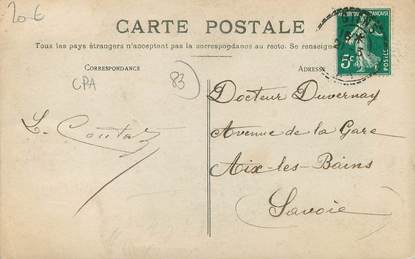 206
CARTE POSTALE
Tous les pays étrangers n'acceptent pas la correspondance au recto. Se renseigner
CORRESPONDANCE
ADRESSE
CPA
83
L. Coutaz
Docteur Duvernay
Avenue de la Gare
Aix-les-Bains
(Savoie)
5c
POSTES